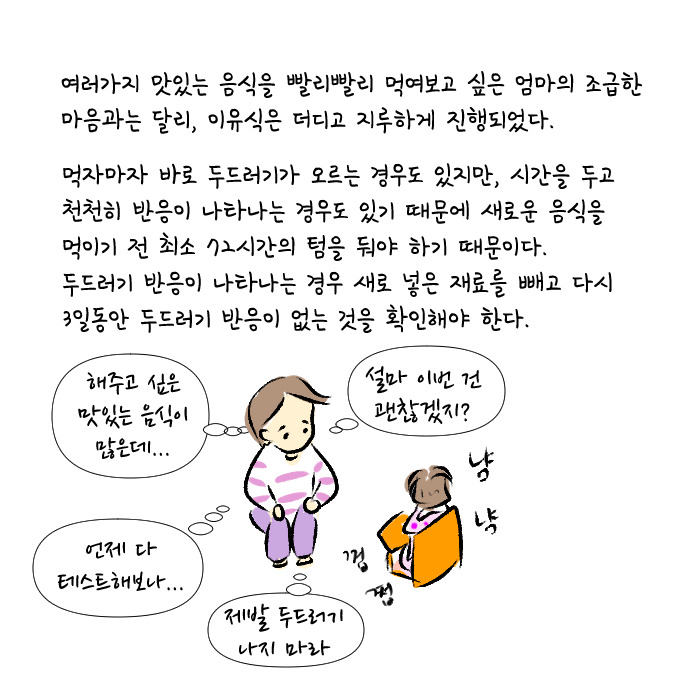 여러가지 맛있는 음식을 빨리빨리 먹여보고 싶은 엄마의 조급한
마음과는 달리, 이유식은 더디고 지루하게 진행되었다.
먹자마자 바로 두드러기가 오르는 경우도 있지만, 시간을 두고
천천히 반응이 나타나는 경우도 있기 때문에 새로운 음식을
먹이기 전 최소 72시간의 텀을 둬야 하기 때문이다.
두드러기 반응이 나타나는 경우 새로 넣은 재료를 빼고 다시
3일동안 두드러기 반응이 없는 것을 확인해야 한다.
해주고 싶은
맛있는 음식이
많은데...
설마 이번 건
괜찮겠지?
냠
냑
껌
쩝
언제 다
테스트해보나...
제발 두드러기
나지 마라